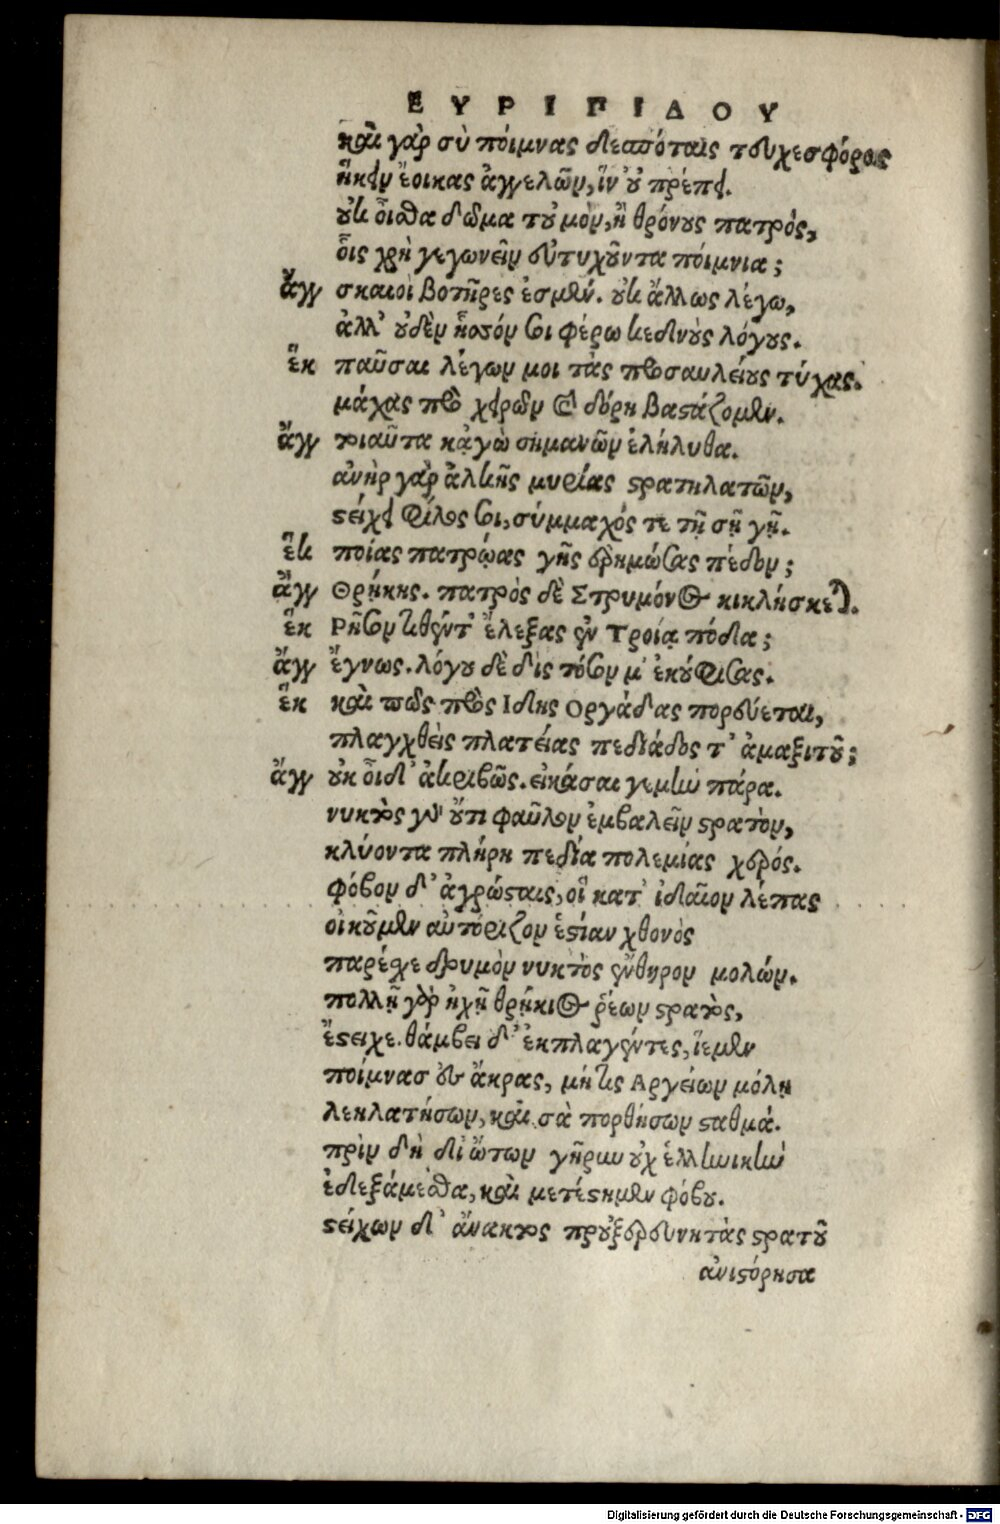 ΕΥΡΙΠΙΔΟΥ
καὶ γὰρ σὺ πόιμνας δεσπόταις τευχεσφόροις
ἥκειν ἔοικας ἀγγελῶν, ἵν' οὐ πρέπει.
οὐκ οἶσθα δῶμα τοὐμὸν, ἢ θρόνους πατρὸς,
οἷς χρὴ γεγωνεῖν εὐτυχοῦντα πόιμνια;
ἄγγ σκαιοὶ βοτῆρες ἐσμέν. οὐκ ἄλλως λέγω,
ἀλλ' οὐδὲν ἧσσόν σοι φέρω κεδνοὺς λόγους.
ἕκ παῦσαι λέγων μοι τὰς προσαυλείους τύχας.
μάχας πρὸ χειρῶν καὶ δόρη βαστάζομεν.
ἄγγ τοιαῦτα κᾀγὼ σημανῶν ἐλήλυθα.
ἀνὴρ γὰρ ἀλκῆς μυρίας στρατηλατῶν,
στείχει φίλος σοι, σύμμαχός τε τῇ σῇ γῇ.
ἕκ ποίας πατρῴας γῆς ἐρημώσας πέδον;
ἄγγ Θρῄκης. πατρὸς δὲ Στρυμόνος κικλήσκεται.
ἕκ Ρῆσον τιθέντ' ἔλεξας ἐν Τροίᾳ πόδα;
ἄγγ ἔγνως. λόγου δὲ δὶς τόσου μ' ἐκούφισας.
ἕκ καὶ πῶς πρὸς Ιδης Οργάδας πορεύεται,
πλαγχθεὶς πλατείας πεδιάδος τ' ἁμαξιτοῦ;
ἄγγ οὐκ οἶδ' ἀκριβῶς. εἰκάσαι γεμὴν πάρα.
νυκτὸς γὰρ οὔτι φαῦλον ἐμβαλεῖν στρατὸν,
κλύοντα πλήρη πεδία πολεμίας χερός.
φόβον δ' ἀγρώσταις, οἳ κατ' ἰδαῖον λέπας
οἰκοῦμεν αὐτόριζον ἑστίαν χθονὸς
παρέσχε δρυμὸν νυκτὸς ἔνθηρον μολών.
πολλῇ γὰρ ἠχῇ θρῄκιος ῥέων στρατὸς,
ἔστειχε. θάμβει δ' ἐκπλαγέντες, ἵεμεν
ποίμνασ εἰς ἄκρας, μή τις Αργείων μόλῃ
λεηλατήσων, καὶ σὰ πορθήσων σταθμά.
πρὶν δὴ δι' ὤτων γῆρυν οὐχ ἑλληνικὴν
ἐδεξάμεσθα, καὶ μετέστημεν φόβου.
στείχων δ' ἄνακτος προὐξερευνητὰς στρατοῦ
ἀνιστόρησα
Digitalisierung gefördert durch die Deutsche Forschungsgemeinschaft - DFG